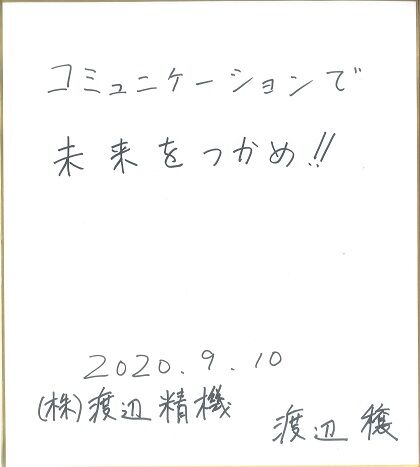 コミュニケーションで
未来をつかめ!!
2020.9.10
(株)渡辺精機
渡辺 穣